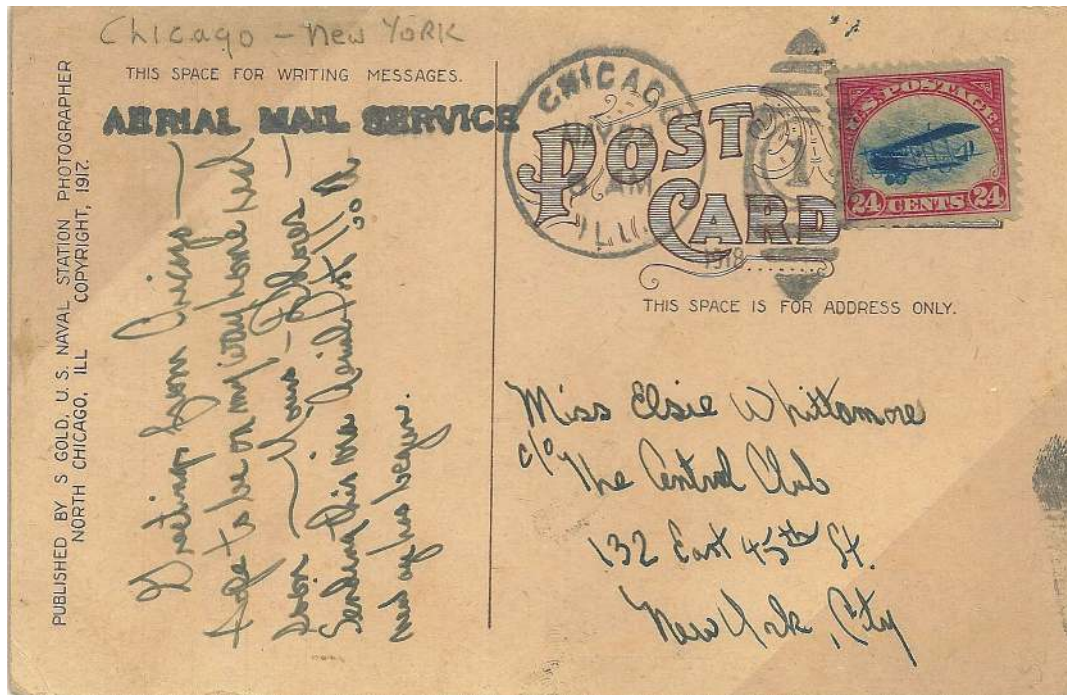 Chicago - New YORK
THIS SPACE FOR WRITING MESSAGES.
AERIAL MAIL SERVICE
PUBLISHED BY S GOLD, U. S. NAVAL STATION PHOTOGRAPHER
NORTH CHICAGO, ILL COPYRIGHT, 1917.
Greetings from Chicago —
hope to be on my way home real
soon — Yours —
Sending this via Aerial Post
CHICAGO
AM
ILL.
1918
POST
CARD
U.S. POSTAGE
24 CENTS 24
THIS SPACE IS FOR ADDRESS ONLY.
Miss Elsie Whittamore
c/o The Central Club
132 East 45th St.
New York, City